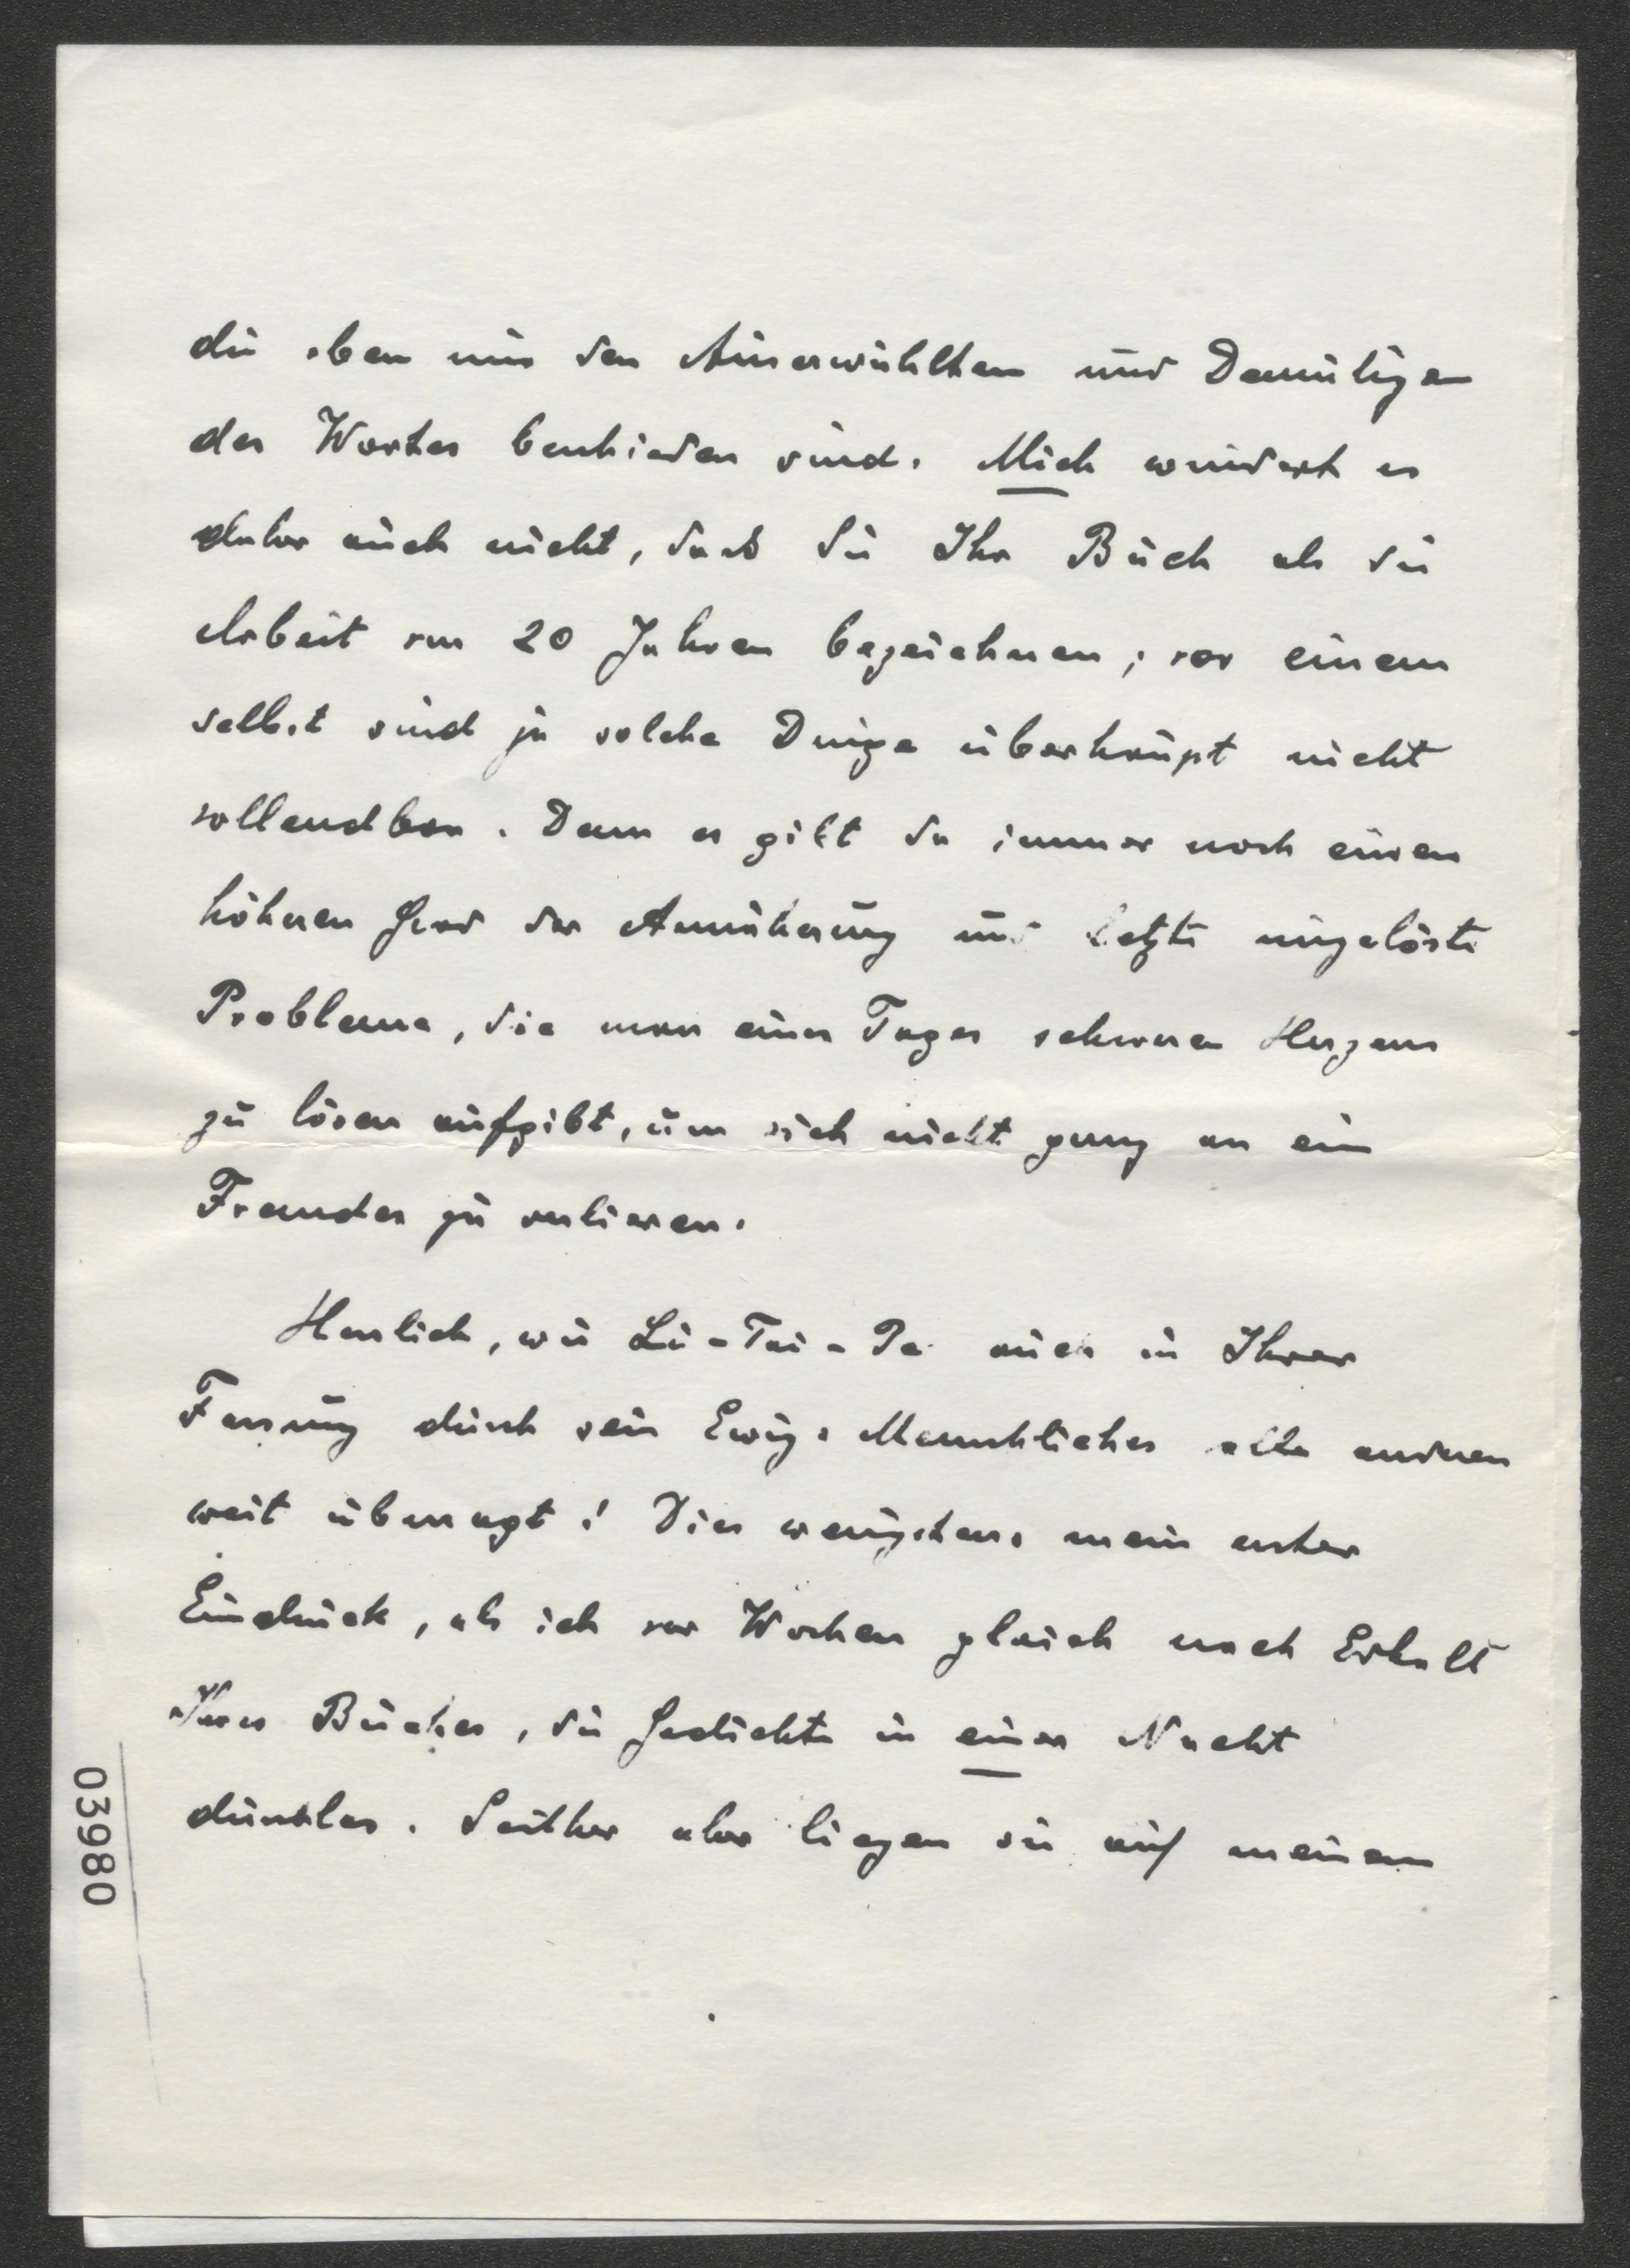 die eben nur den Auserwählten und Demütigen
des Wortes beschieden sind. Mich wundert es
daher auch nicht, dass Sie Ihr Buch als die
Arbeit von 20 Jahren bezeichnen; vor einem
selbst sind ja solche Dinge überhaupt nicht
vollendbar. Denn es gibt da immer noch einen
höheren Grad der Annäherung und letzte ungelöste
Probleme, die man eines Tages schweren Herzens
zu lösen aufgibt, um sich nicht ganz an ein
Fremdes zu verlieren.
Herrlich, wie Li-Tai-Pe auch in Ihrer
Fassung durch sein Ewig-Menschliches alle anderen
weit überragt! Dies wenigstens mein erster
Eindruck, als ich vor Wochen gleich nach Erhalt
Ihres Buches, die Gedichte in einer Nacht
durchlas. Seither aber liegen sie auf meinem
03980